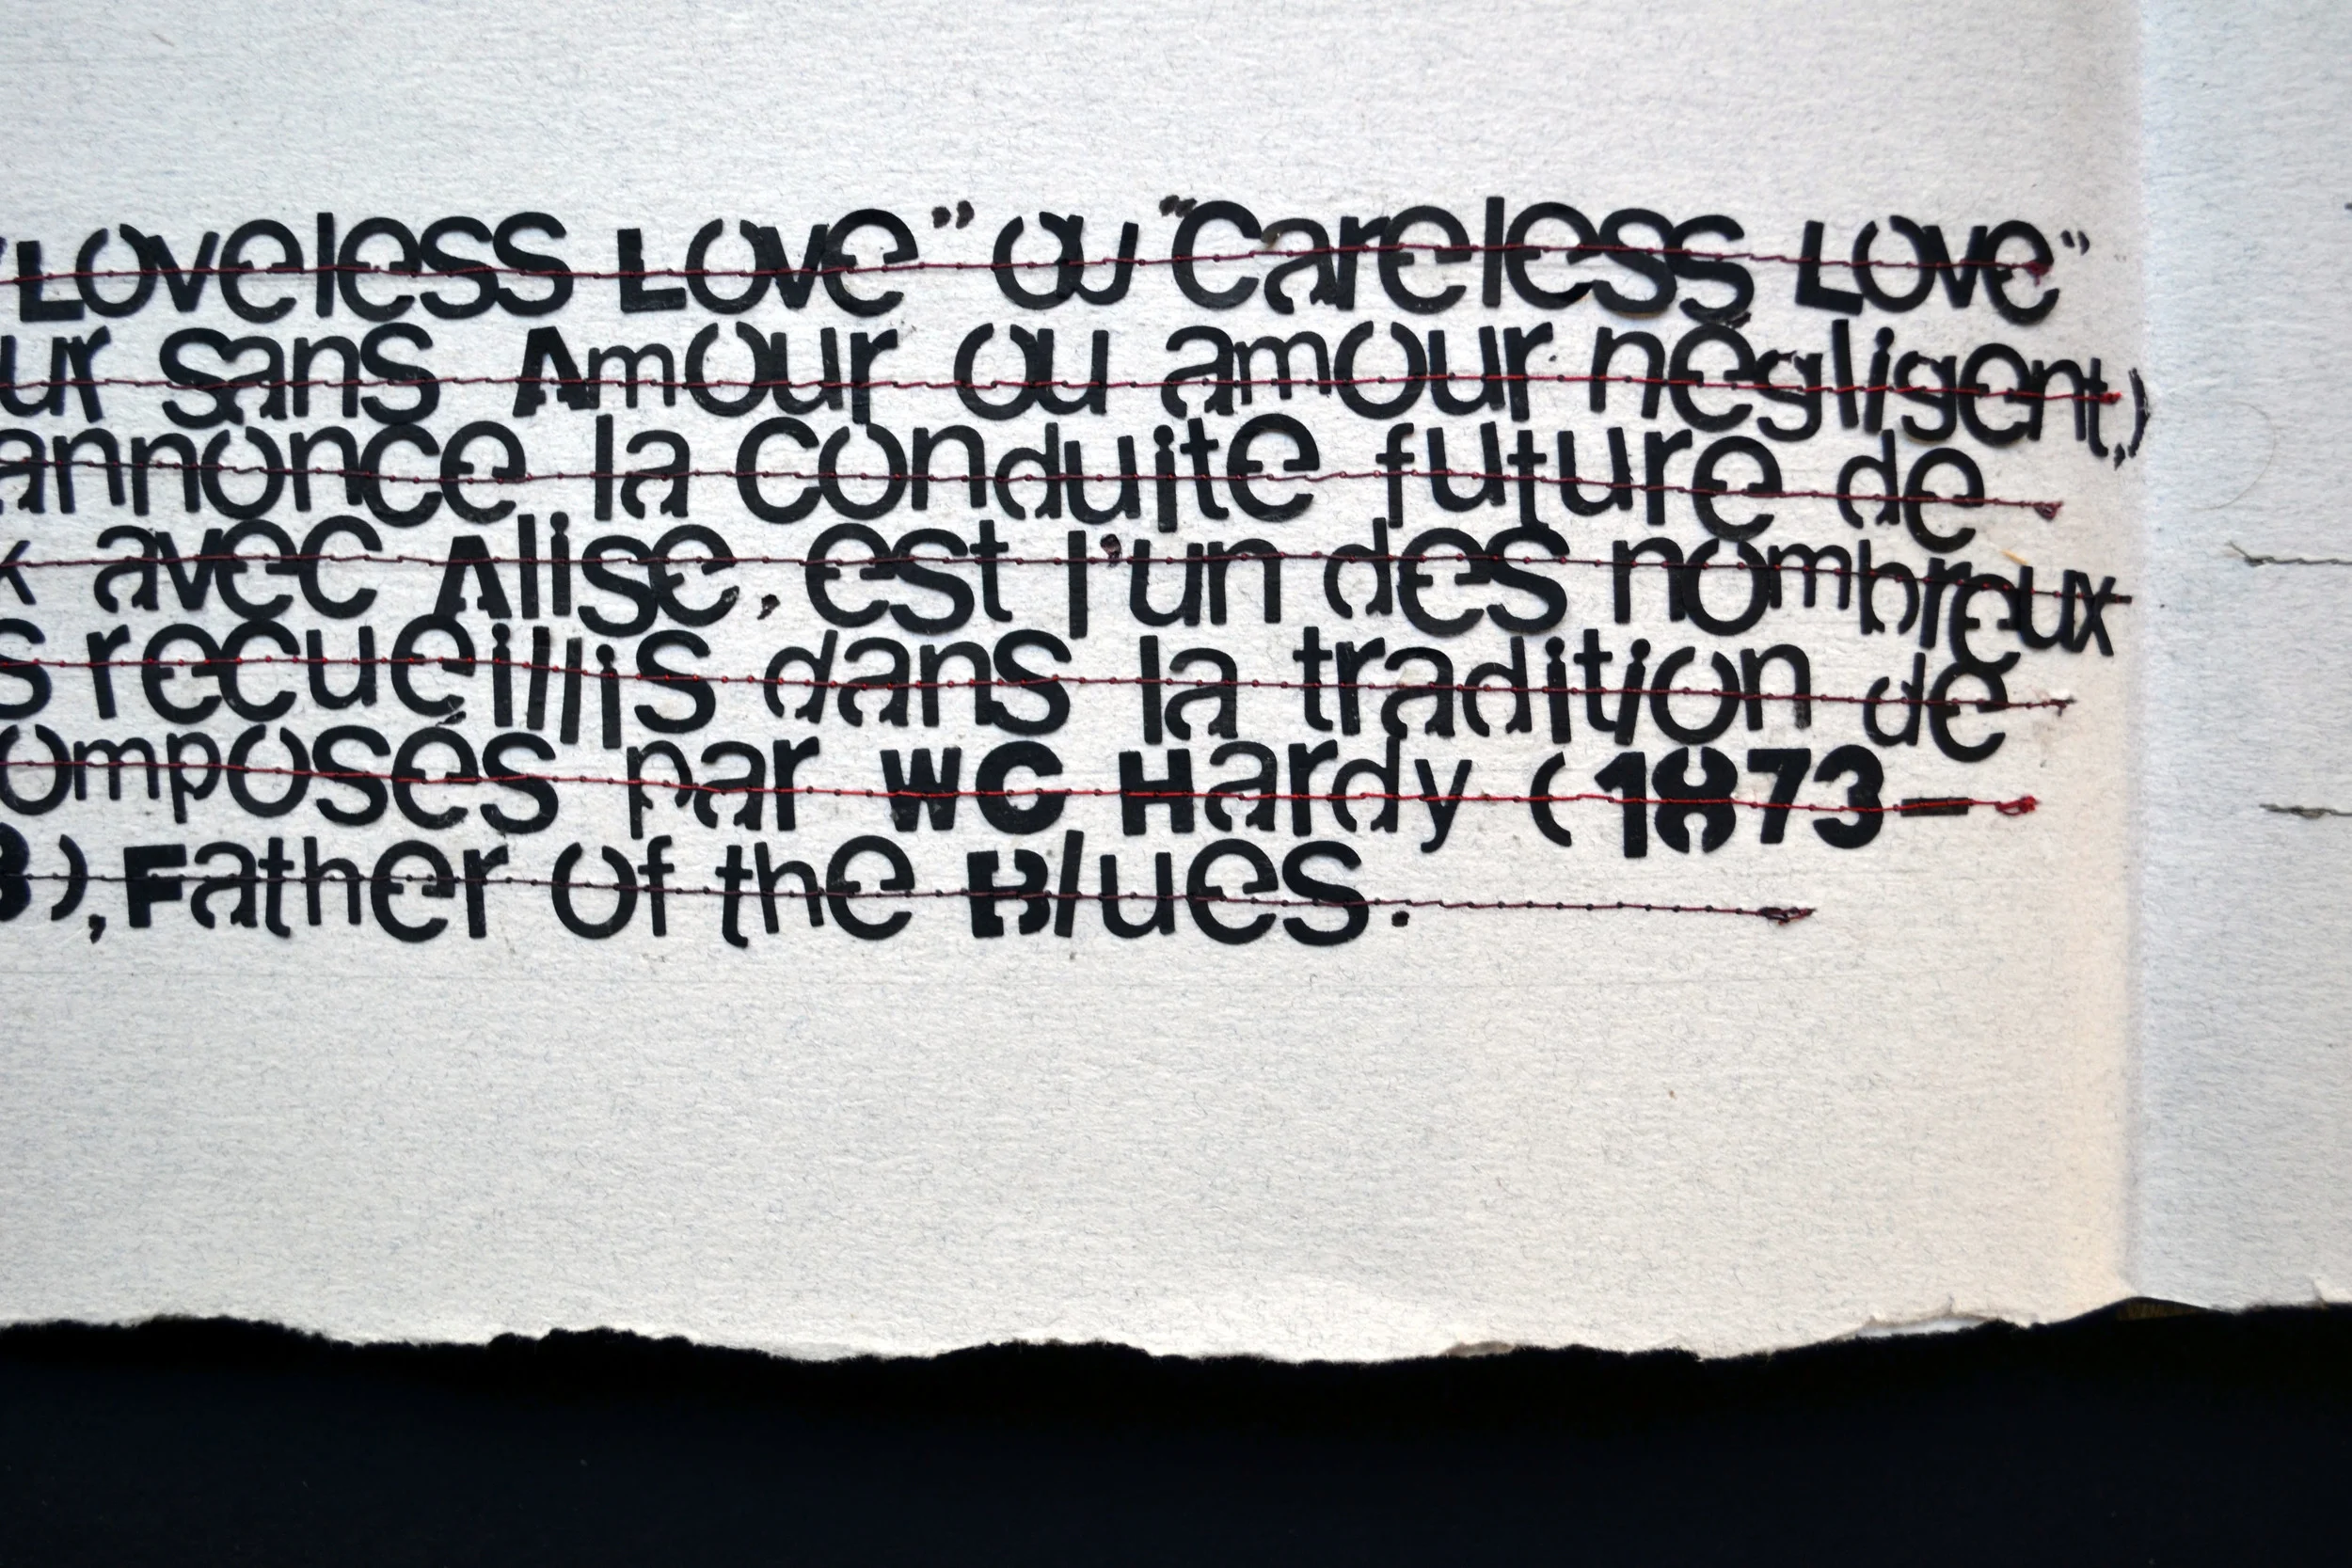 "Loveless Love" ou "Careless Love"
ur sans Amour ou amour négligent,)
annonce la conduite future de
x avec Alise, est l'un des nombreux
s recueillis dans la tradition de
omposés par WC Hardy (1873-
8), Father of the Blues.